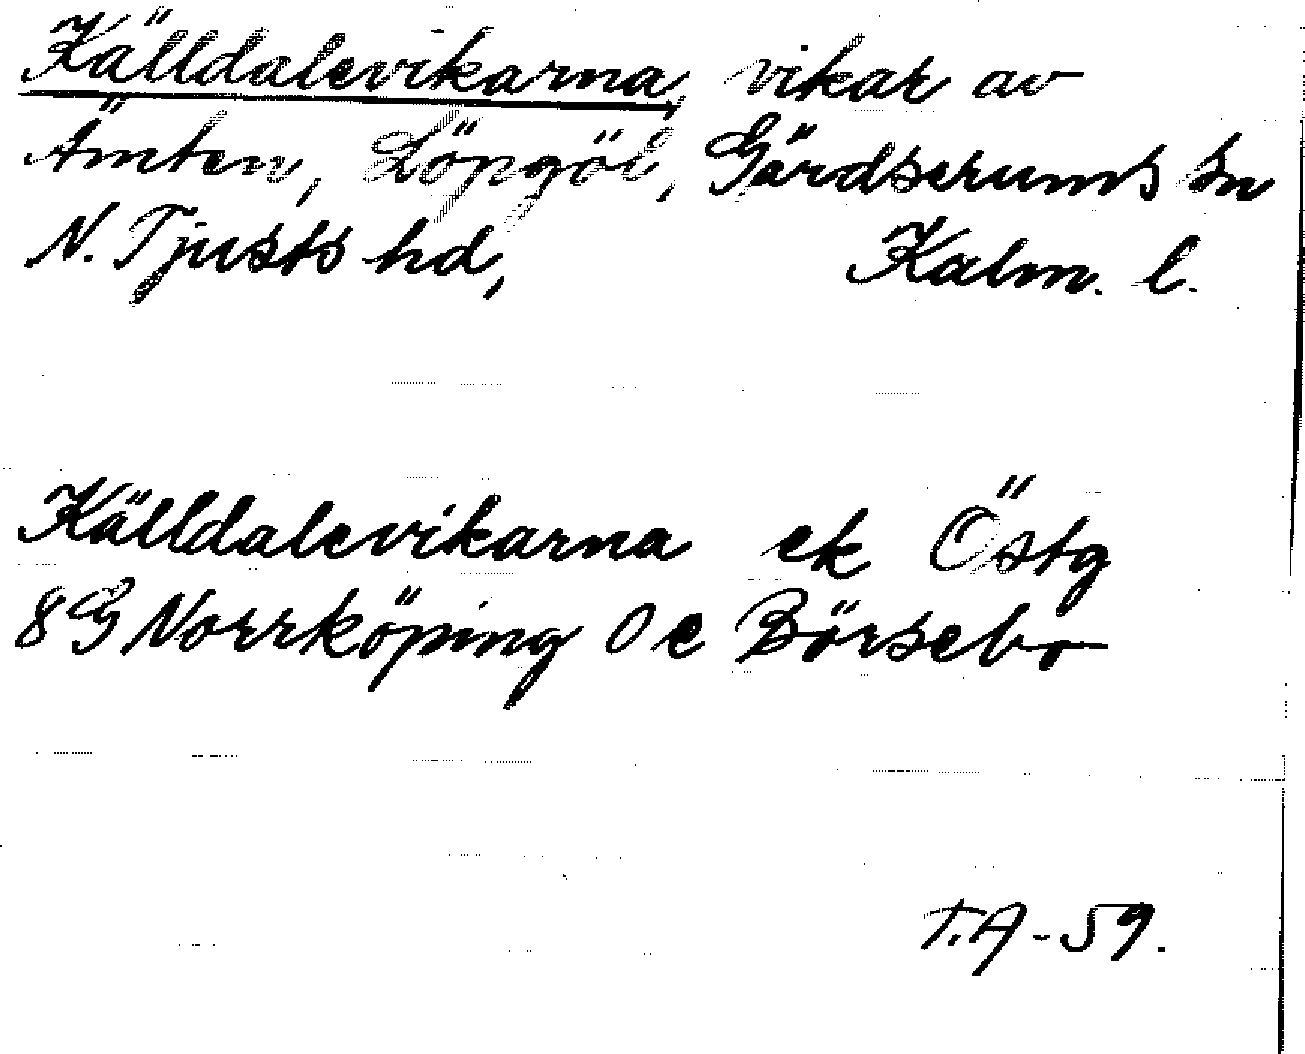 Källdalevikarna, vikar av
Ämten, Löpgöl, Gärdserums sn
N. Tjusts hd, Kalm. l.
Källdalevikarna ek Östg
8G Norrköping 0e Börsebo
T.A-59.